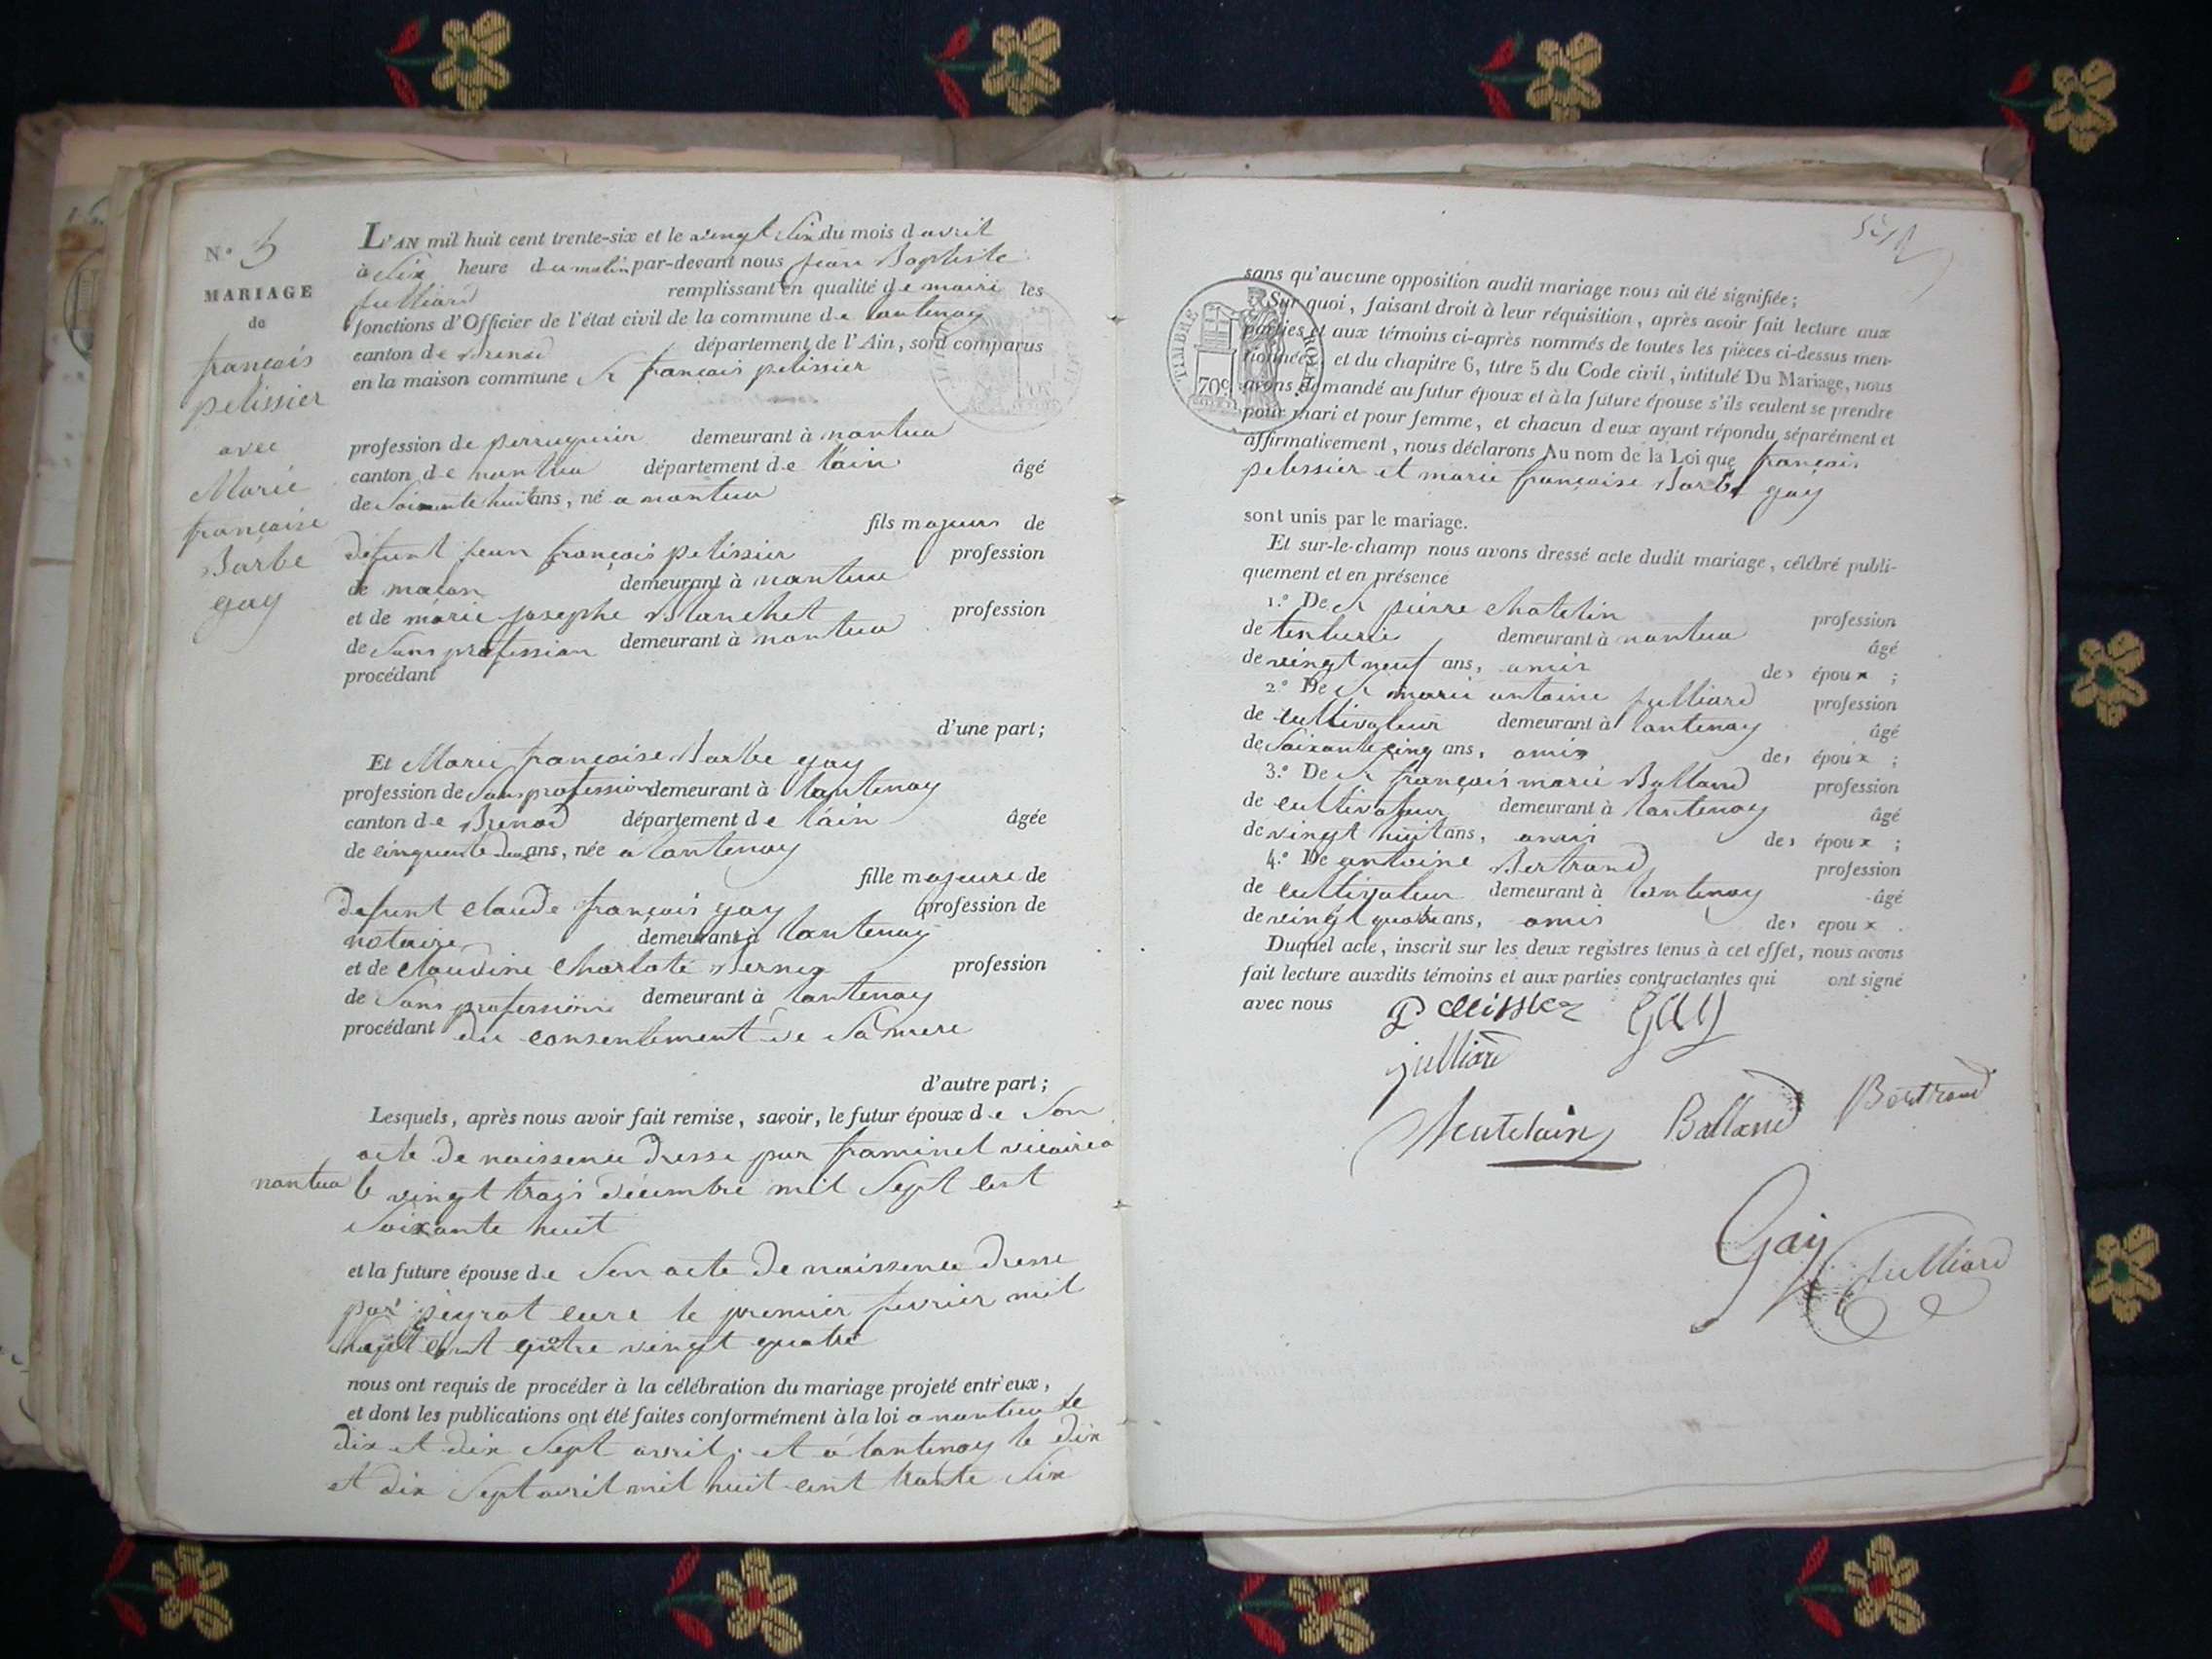 N.o 5
MARIAGE
de
françois
pelissier
avec
Marie
françoise
Barbe
gay
L'AN mil huit cent trente-six et le vingt six du mois d avril
à six heure du matin par-devant nous jean Baptiste
julliard remplissant en qualité de maire les
fonctions d'Officier de l'état civil de la commune de lantenay
canton de Brenod département de l'Ain, sont comparus
en la maison commune Sr françois pelissier
profession de perruquier demeurant à nantua
canton de nantua département de l'ain âgé
de Soixante huit ans, né a nantua
fils majeurs de
défunt jean françois pelissier profession
de macon demeurant à nantua
et de marie josephe Blanchet profession
de Sans profession demeurant à nantua
procédant
d'une part;
Et Marie françoise Barbe gay
profession de Sans profession demeurant à lantenay
canton de Brenod département de l'ain âgée
de cinquente deux ans, née a lantenay
fille majeure de
defunt claude françois gay profession de
notaire demeurant à lantenay
et de claudine charlote profession
de Sans profession demeurant à lantenay
procédant du consentement de Sa mere
d'autre part;
Lesquels, après nous avoir fait remise, savoir, le futur époux de Son
acte de naissence dresse par framinet vicaire a
nantua le vingt trois décembre mil Sept cent
Soixante huit
et la future épouse de Son acte de naissence dresse
par peyrot cure le premier fevrier mil
Sept cent quatre vingt quatre
nous ont requis de procéder à la célébration du mariage projeté entr'eux,
et dont les publications ont été faites conformément à la loi a nantua le
dix et dix Sept avril, et a lantenay le dix
et dix Sept avril mil huit cent trante Six
sans qu'aucune opposition audit mariage nous ait été signifiée;
Sur quoi, faisant droit à leur réquisition, après avoir fait lecture aux
parties et aux témoins ci-après nommés de toutes les pièces ci-dessus men-
tionnées, et du chapitre 6, titre 5 du Code civil, intitulé Du Mariage, nous
avons demandé au futur époux et à la future épouse s'ils veulent se prendre
pour mari et pour femme, et chacun d eux ayant répondu séparément et
affirmativement, nous déclarons Au nom de la Loi que françois
pelissier et marie françoise Barbe gay
TIMBRE ROYAL
70c
sont unis par le mariage.
Et sur-le-champ nous avons dressé acte dudit mariage, célébré publi-
quement et en présence
1.o De Sr pierre chatelin profession
de demeurant à nantua âgé
de vingt neuf ans, amis des époux ;
2.o De Sr marie antoine julliard profession
de cultivateur demeurant à lantenay âgé
de Soixante cinq ans, amis des époux ;
3.o De Sr françois marie Balland profession
de cultivateur demeurant à lantenay âgé
de vingt huit ans, amis des époux ;
4.o De antoine Bertrand profession
de cultivateur demeurant à lantenay âgé
de vingt quatre ans, amis des epoux .
Duquel acte, inscrit sur les deux registres tenus à cet effet, nous avons
fait lecture auxdits témoins et aux parties contractantes qui ont signé
avec nous Pelissier Gay
julliard
Balland Bertrand
Gay julliard